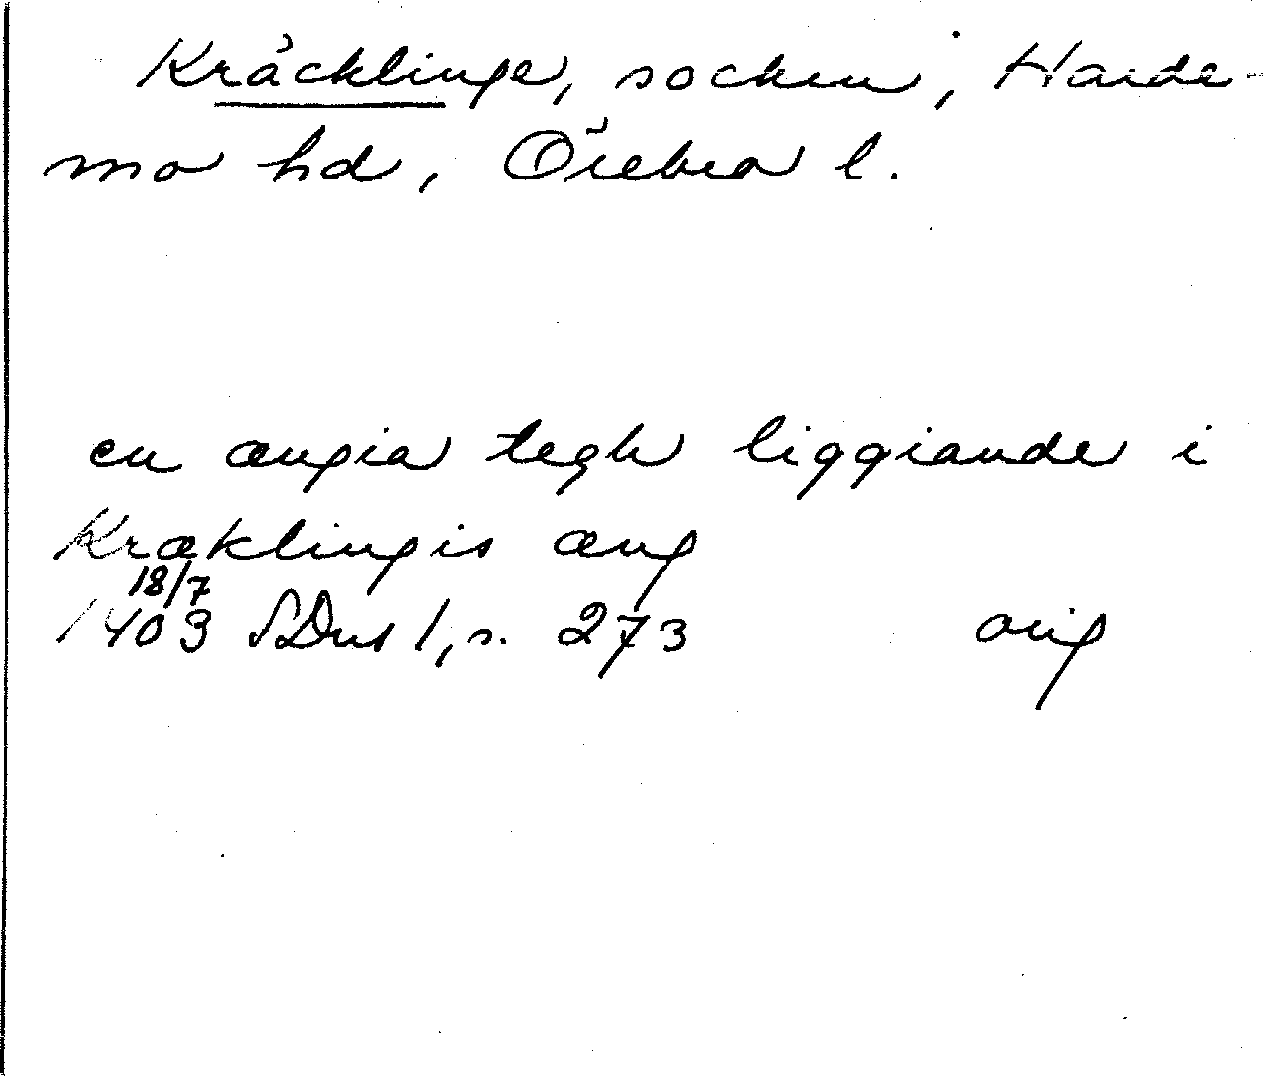 Kräcklinge, socken, Harde-
mo hd, Örebro l.
en ængia tegh liggiande i
Kræklingis æng
18/7
1403 SDns 1, s. 273 orig